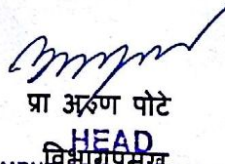 प्रा अरुण पोटे
HEAD
विभागप्रमुख